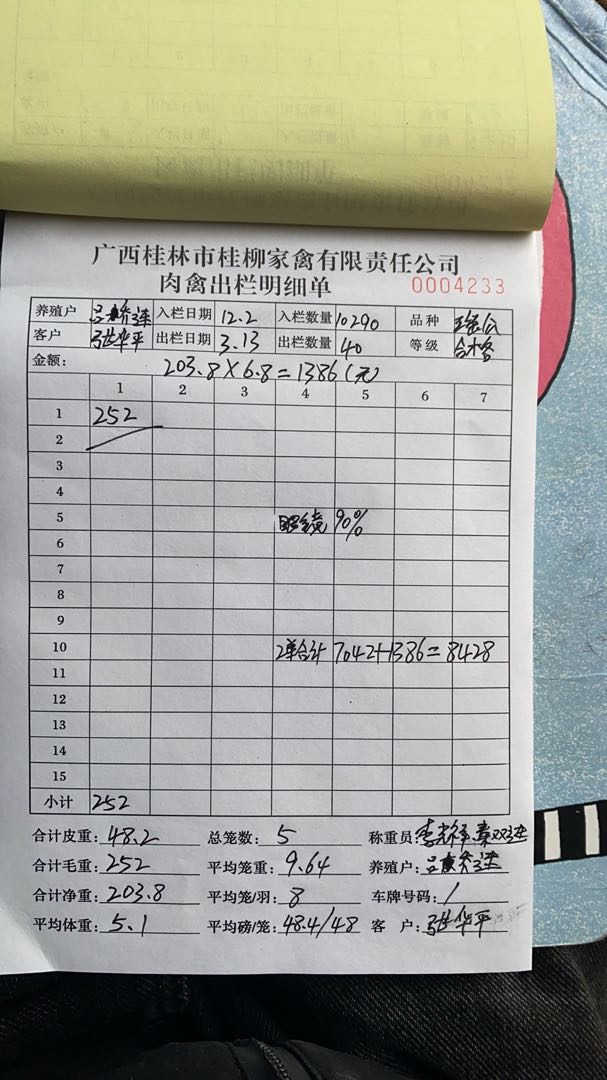 广西桂林市桂柳家禽有限责任公司
肉禽出栏明细单 0004233
养殖户 入栏日期 12.2 入栏数量 10290 品种
客户 张华平 出栏日期 3.13 出栏数量 40 等级 合格
金额: 203.8×6.8=1386(元)
1 2 3 4 5 6 7
1 252
2
3
4
5 眼镜 90%
6
7
8
9
10 2单合计 7042+1386=8428
11
12
13
14
15
小计 252
合计皮重: 48.2 总笼数: 5 称重员:
合计毛重: 252 平均笼重: 9.64 养殖户:
合计净重: 203.8 平均笼/羽: 8 车牌号码: /
平均体重: 5.1 平均磅/笼: 48.4/48 客户: 张华平